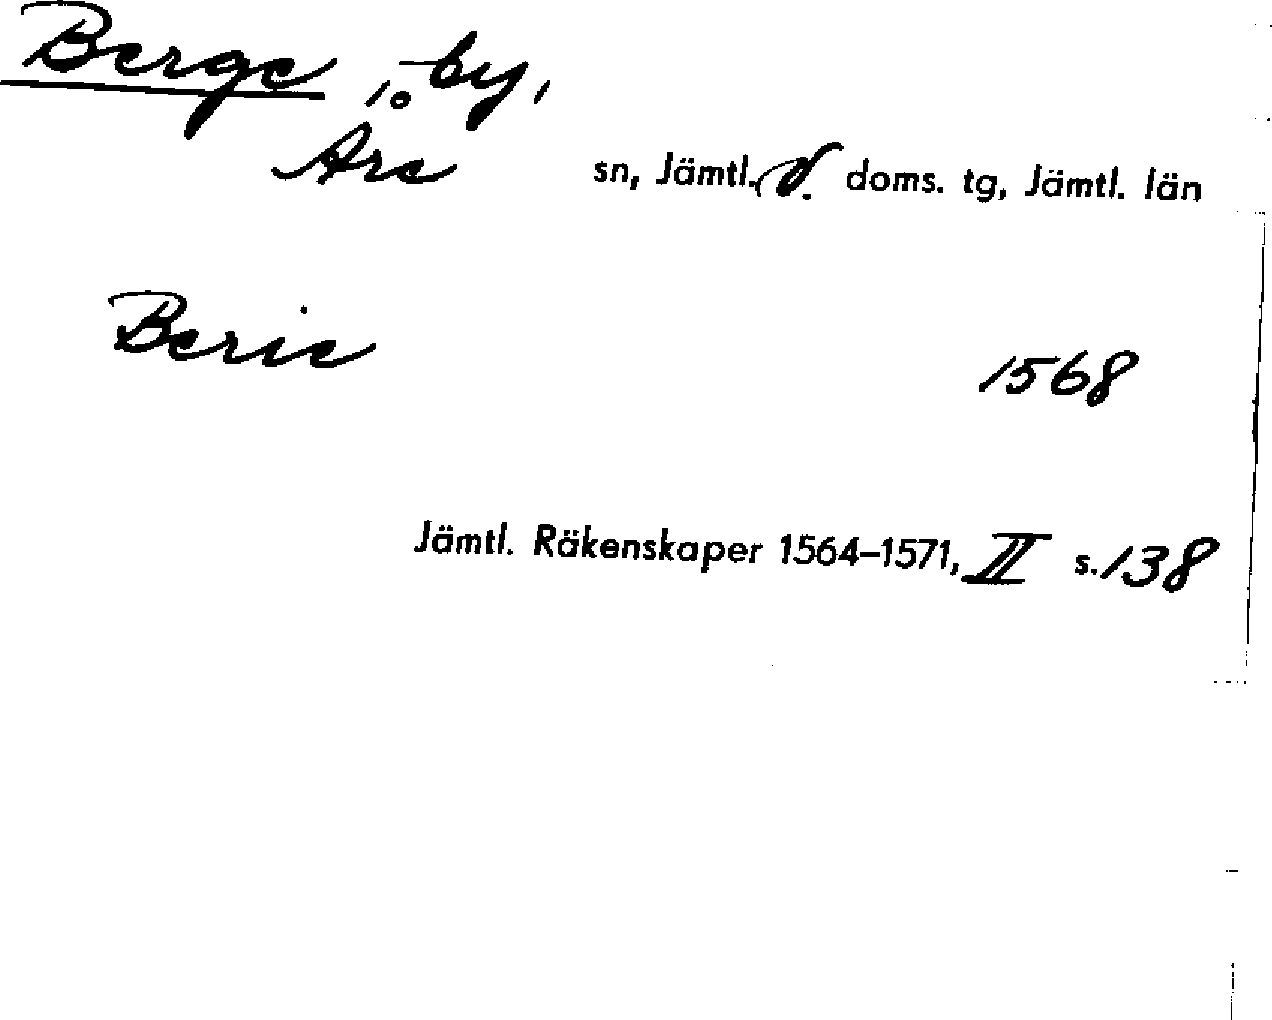 Berge, by,
Åre sn, Jämtl. V. doms. tg, Jämtl. län
Berie 1568
Jämtl. Räkenskaper 1564–1571, II s. 138